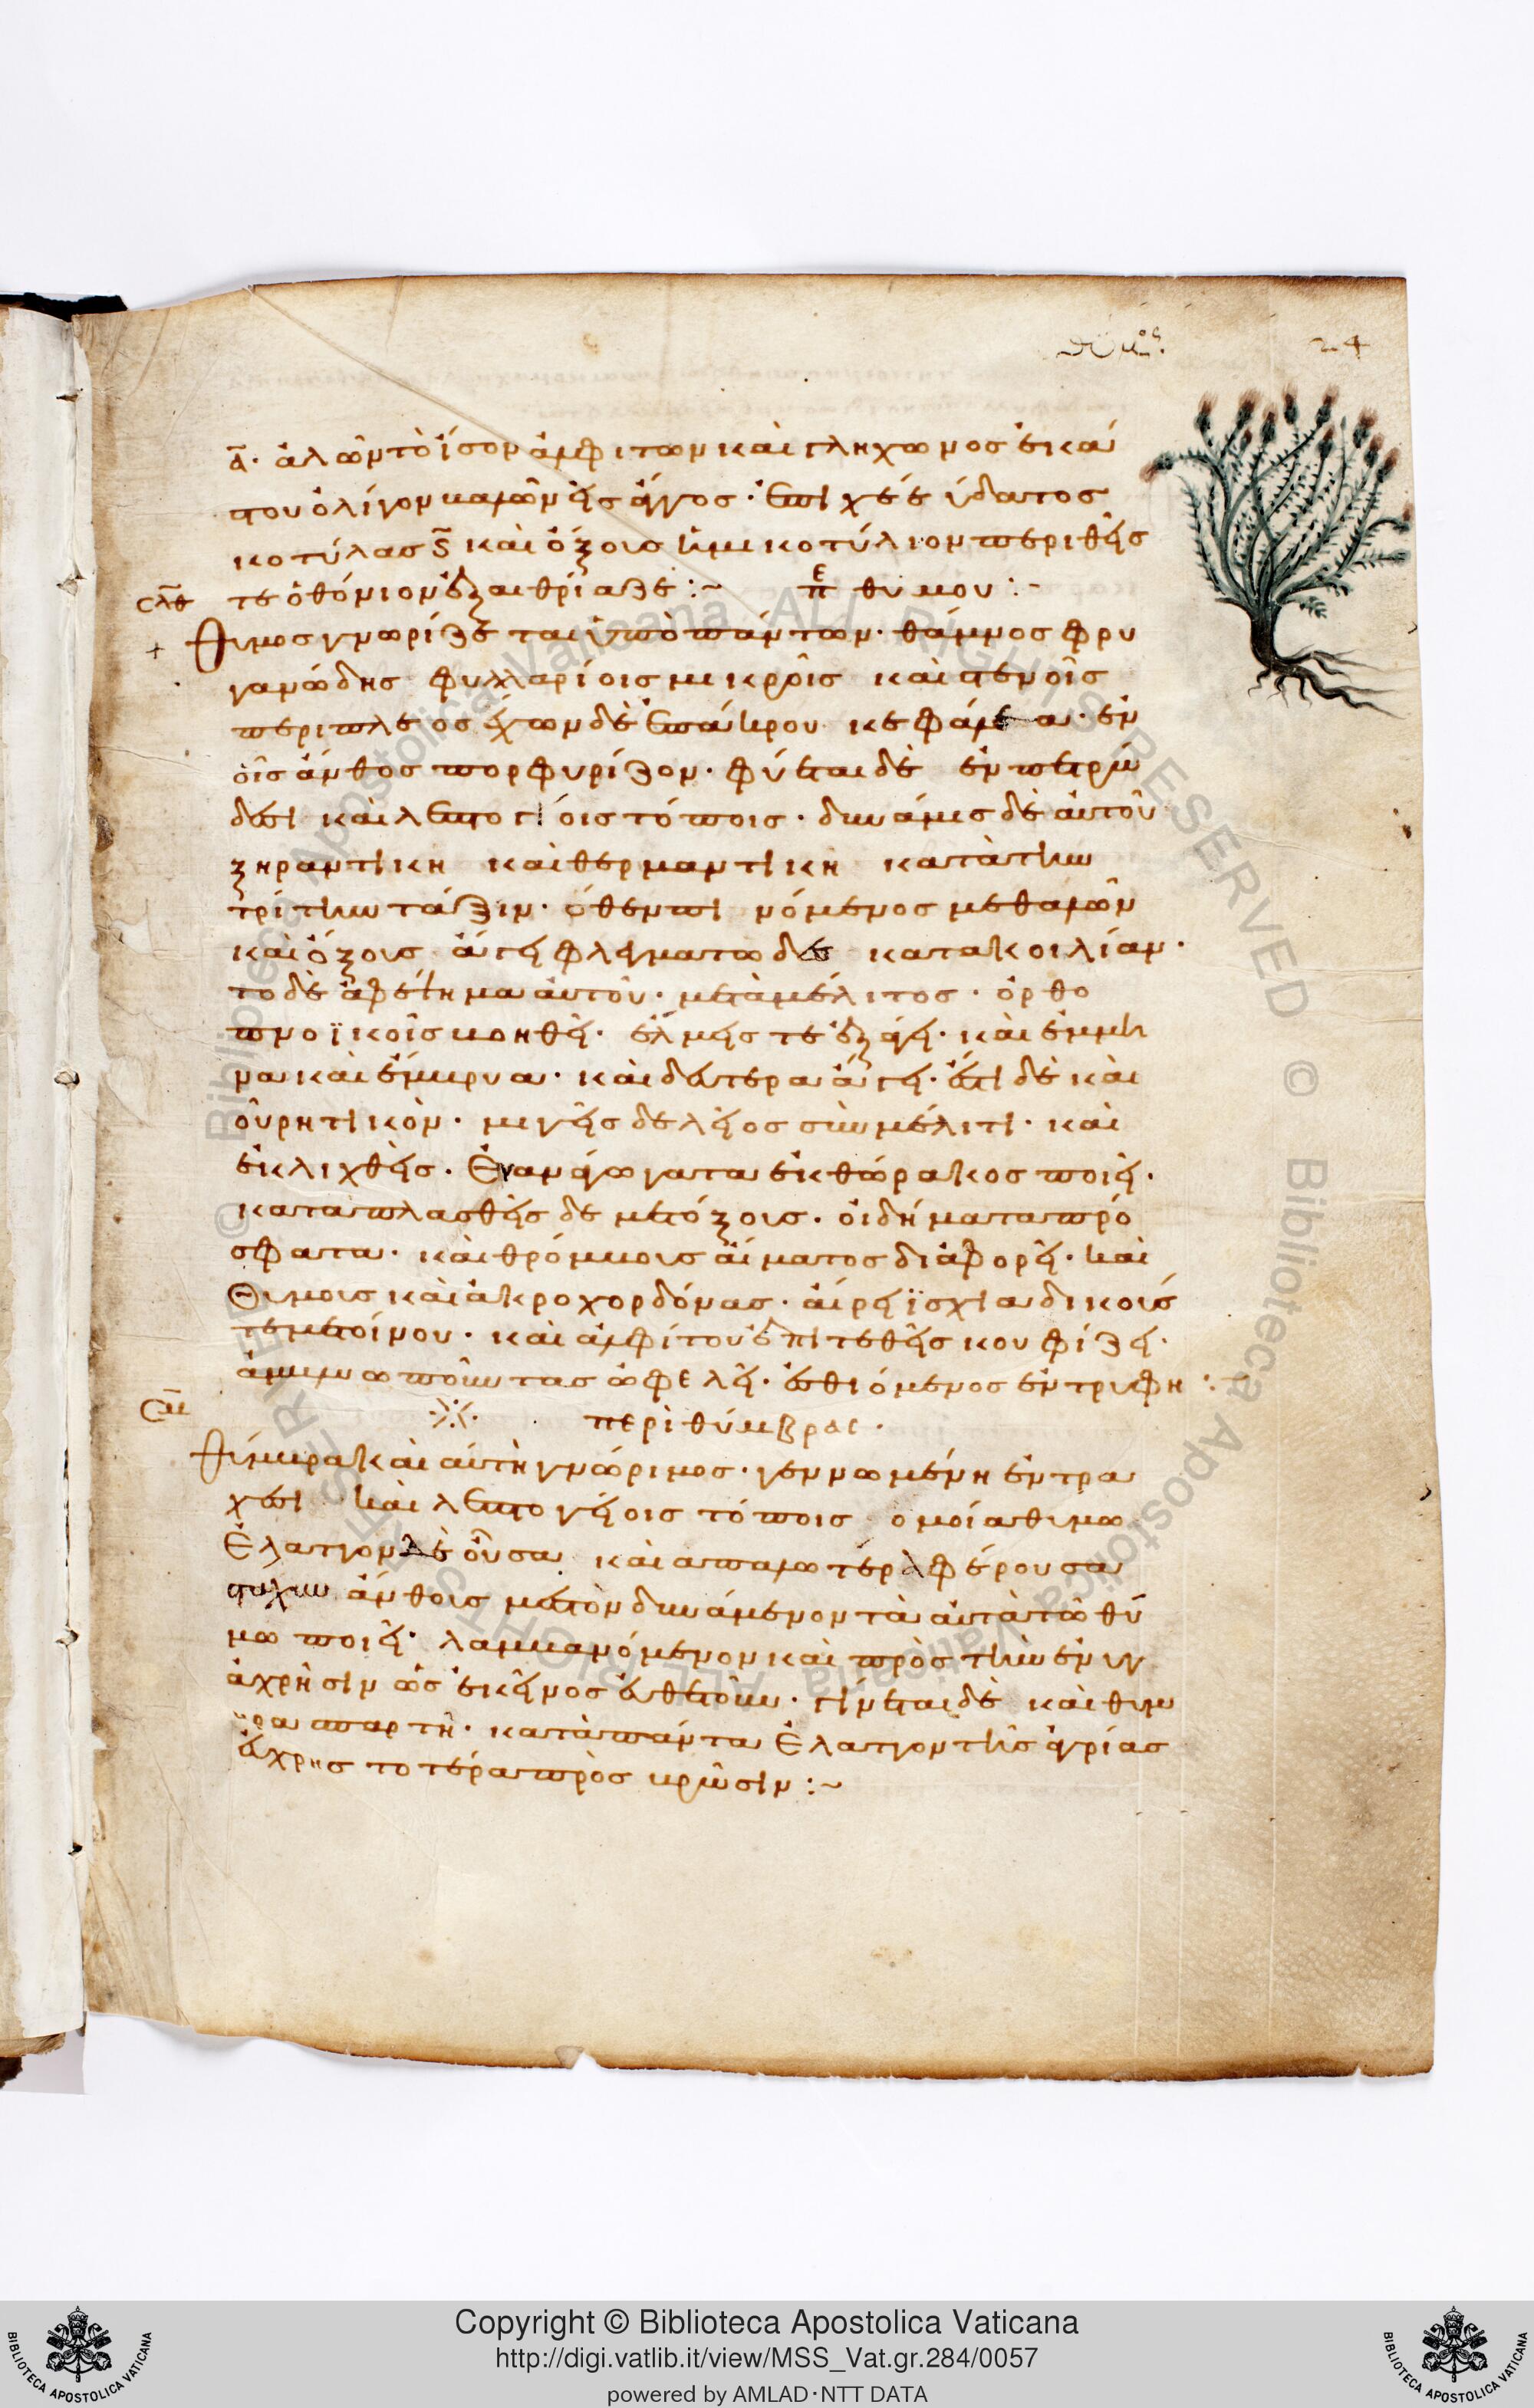 θύμος
24
ᾱ· ἁλῶν τὸ ἴσον ἀλφίτων καὶ γληχωνος ἑκά
του ὀλίγον καμὼν εἰς ἄγγος· ἐπιχέε ὕδατος
κοτύλας ς̄ καὶ ὄξους ἡμικοτύλιον περιθείς
τε ὀθόνιον ἐξαιθρίαζε :~ πε θυμου :~
σλθ
θυμος γνωρίζεται ὑπὸ πάντων· θάμνος φρυ
γανώδης φυλλαρίοις μικροῖς καὶ στενοῖς
περιπλεος ἔχων δὲ ἐπάκρου κεφάλια· ἐν
οἷς ἄνθος πορφυρίζον· φύεται δὲ ἐν πετρώ
δεσι καὶ λεπτογείοις τόποις· δυνάμεις δὲ αὐτοῦ
ξηραντικη καὶ θερμαντικη κατὰ τὴν
τρίτην τάξιν· ὅθεν πινόμενος μεθαλῶν
καὶ ὄξους ἄγει φλεγματωδε κατα κοιλίαν·
το δὲ ἀφέψημα αὐτοῦ· μετὰ μέλιτος· ὀρθο
πνοϊκοῖς βοηθεῖ· ἕλμεις τε ἐξάγει· καὶ ἔμμη
να καὶ ἔμβρυα· καὶ δεύτερα ἄγει· ἔτι δὲ καὶ
οὐρητικὸν· μιγεὶς δε λεῖος σὺν μέλιτι· καὶ
ἐκλιχθεὶς· Εὐανάγωγα τα ἐκ θώρακος ποιεῖ·
καταπλασθεὶς δε μετ ὄξους· οἰδήματα πρό
σφατα· καὶ θρόμβους αἵματος διαφορεῖ· καὶ
θυμους καὶ ἀκροχορδόνας· αἴρει ϊσχιαδικούς
τε μετ οίνου· καὶ αλφίτου ἐπιτεθεὶς κουφίζει·
ἀμβλυωποῦντας ὠφελεῖ· ἐσθιόμενος ἐν τρυφη :~
σμ
περὶ θύμβρας·
θύμβρα καὶ αὐτὴ γνώριμος· γεννωμένη ἐν τρα
χέσι καὶ λεπτογείοις τόποις ομοία θυμω
Ἐλαττον δὲ οὖσα καὶ απαλωτέρα φέρουσα
σταχυν ἄνθους μεστὸν δυνάμενον τὰ αὐτὰ τῶ θύ
μω ποιεῖ· λαμβανόμενον καὶ πρὸς τὴν ἐν υγι
ἀχρῆσιν ὡς ἐκεῖνος εὐθετοῦν· γίνεται δὲ καὶ θυμ
βρα σπαρτὴ· κατὰ πάντα Ἐλαττον τῆς ἀγρίας
εὐχρηστοτέρα πρὸς βρῶσιν :~
Copyright © Biblioteca Apostolica Vaticana
http://digi.vatlib.it/view/MSS_Vat.gr.284/0057
powered by AMLAD·NTT DATA
BIBLIOTECA APOSTOLICA VATICANA
BIBLIOTECA APOSTOLICA VATICANA